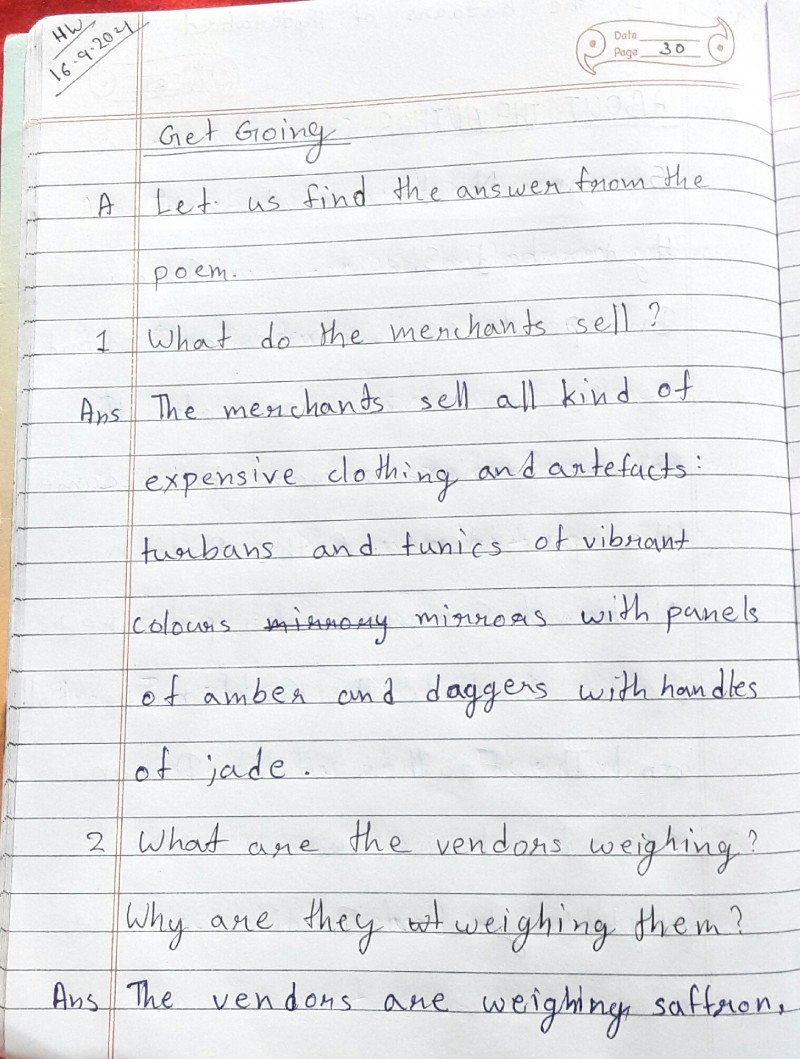 HW
16.9.2021
Date
Page 30
Get Going
A Let us find the answer from the
poem.
1 What do the merchants sell?
Ans The merchants sell all kind of
expensive clothing and artefacts:
turbans and tunics of vibrant
colours mirrory mirrors with panels
of amber and daggers with handles
of jade.
2 What are the vendors weighing?
Why are they wt weighing them?
Ans The vendors are weighing saffron,